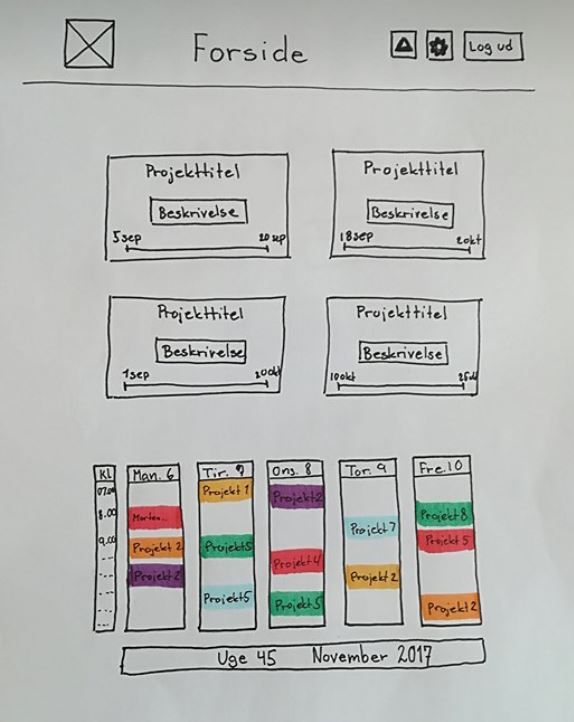 Forside
Log ud
Projekttitel
Beskrivelse
5 sep
20 sep
Projekttitel
Beskrivelse
18 sep
2 okt
Projekttitel
Beskrivelse
1 sep
20 okt
Projekttitel
Beskrivelse
10 okt
Kl
07.00
8.00
9.00
Man. 6
Morten..
Projekt 2
Projekt 2
Tir. 7
Projekt 1
Projekt 5
Projekt 5
Ons. 8
Projekt 2
Projekt 4
Projekt 5
Tor. 9
Projekt 7
Projekt 2
Fre. 10
Projekt 8
Projekt 5
Projekt 2
Uge 45 November 2017